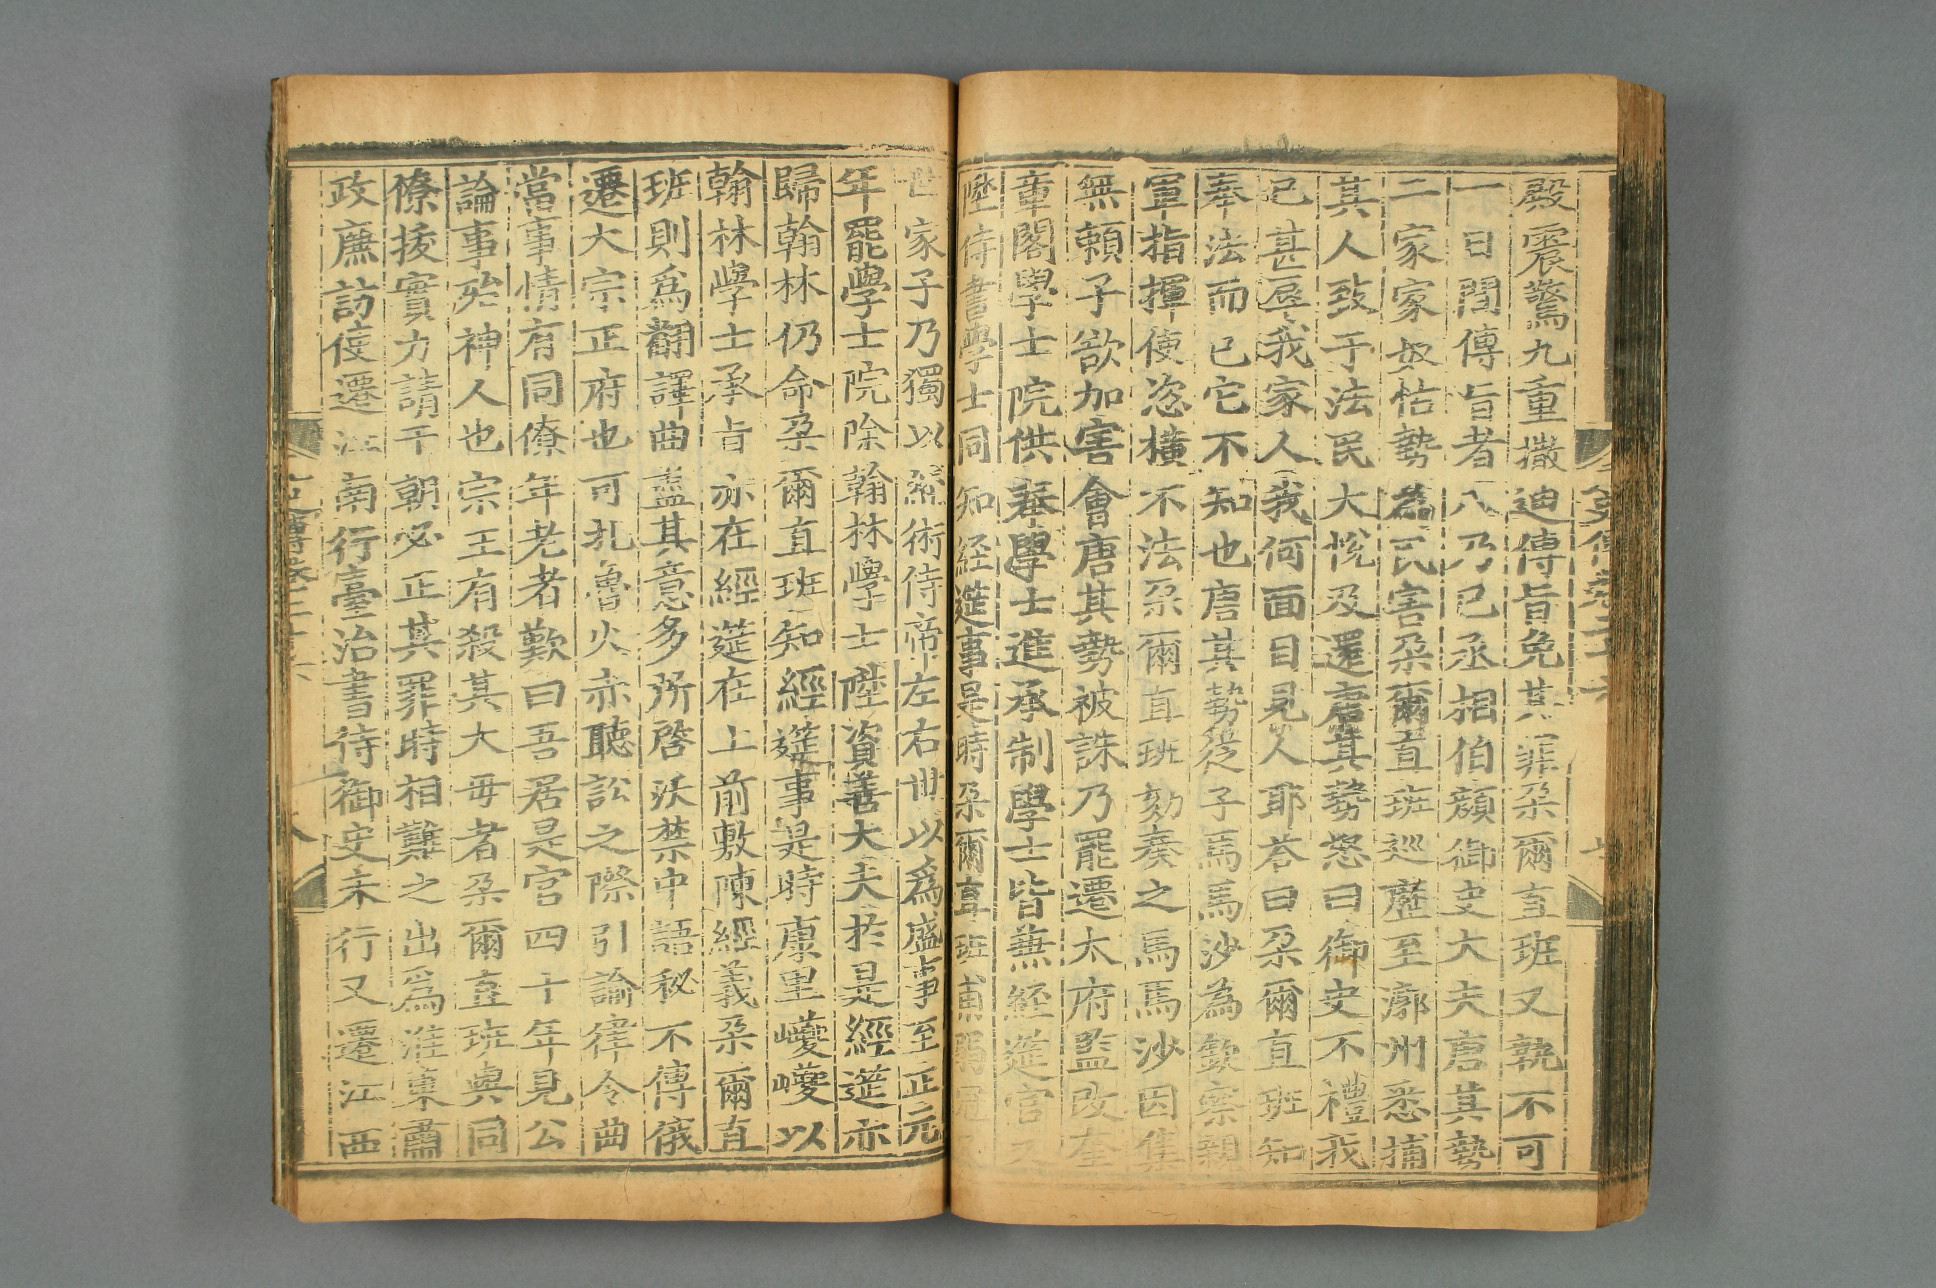 殿震驚九重撒迪傳旨免其罪朶爾直班又執不可
一日間傳旨者八乃已丞相伯顔御史大夫唐其勢
二家家奴怙勢為民害朶爾直班巡歷至漷州悉捕
其人致于法民大悅及還唐其勢怒曰御史不禮我
已甚辱我家人我何面目見人耶荅曰朶爾直班知
奉法而已它不知也唐其勢從子馬馬沙為欽察親
軍指揮使恣橫不法朶爾直班劾奏之馬馬沙因集
無賴子欲加害會唐其勢被誅乃罷遷太府監改奎
章閣學士院供奉學士進承制學士皆兼經筵官
陞侍書學士同知經筵事是時朶爾直班甫弱冠
世家子乃獨以經術侍帝左右世以爲盛事至正元
年罷學士院除翰林學士陞資善大夫於是經筵亦
歸翰林仍命朶爾直班知經筵事是時康里巙巙以
翰林學士承旨亦在經筵在上前敷陳經義朶爾直
班則爲翻譯曲盡其意多所啓沃禁中語秘不傳俄
遷大宗正府也可扎魯火赤聽訟之際引諭律令曲
當事情有同僚年老者歎曰吾居是官四十年見公
論事殆神人也宗王有殺其大毋者朶爾直班與同
僚拔實力請于朝必正其罪時相難之出爲淮東肅
政廉訪使遷江南行臺治書侍御史未行又遷江西